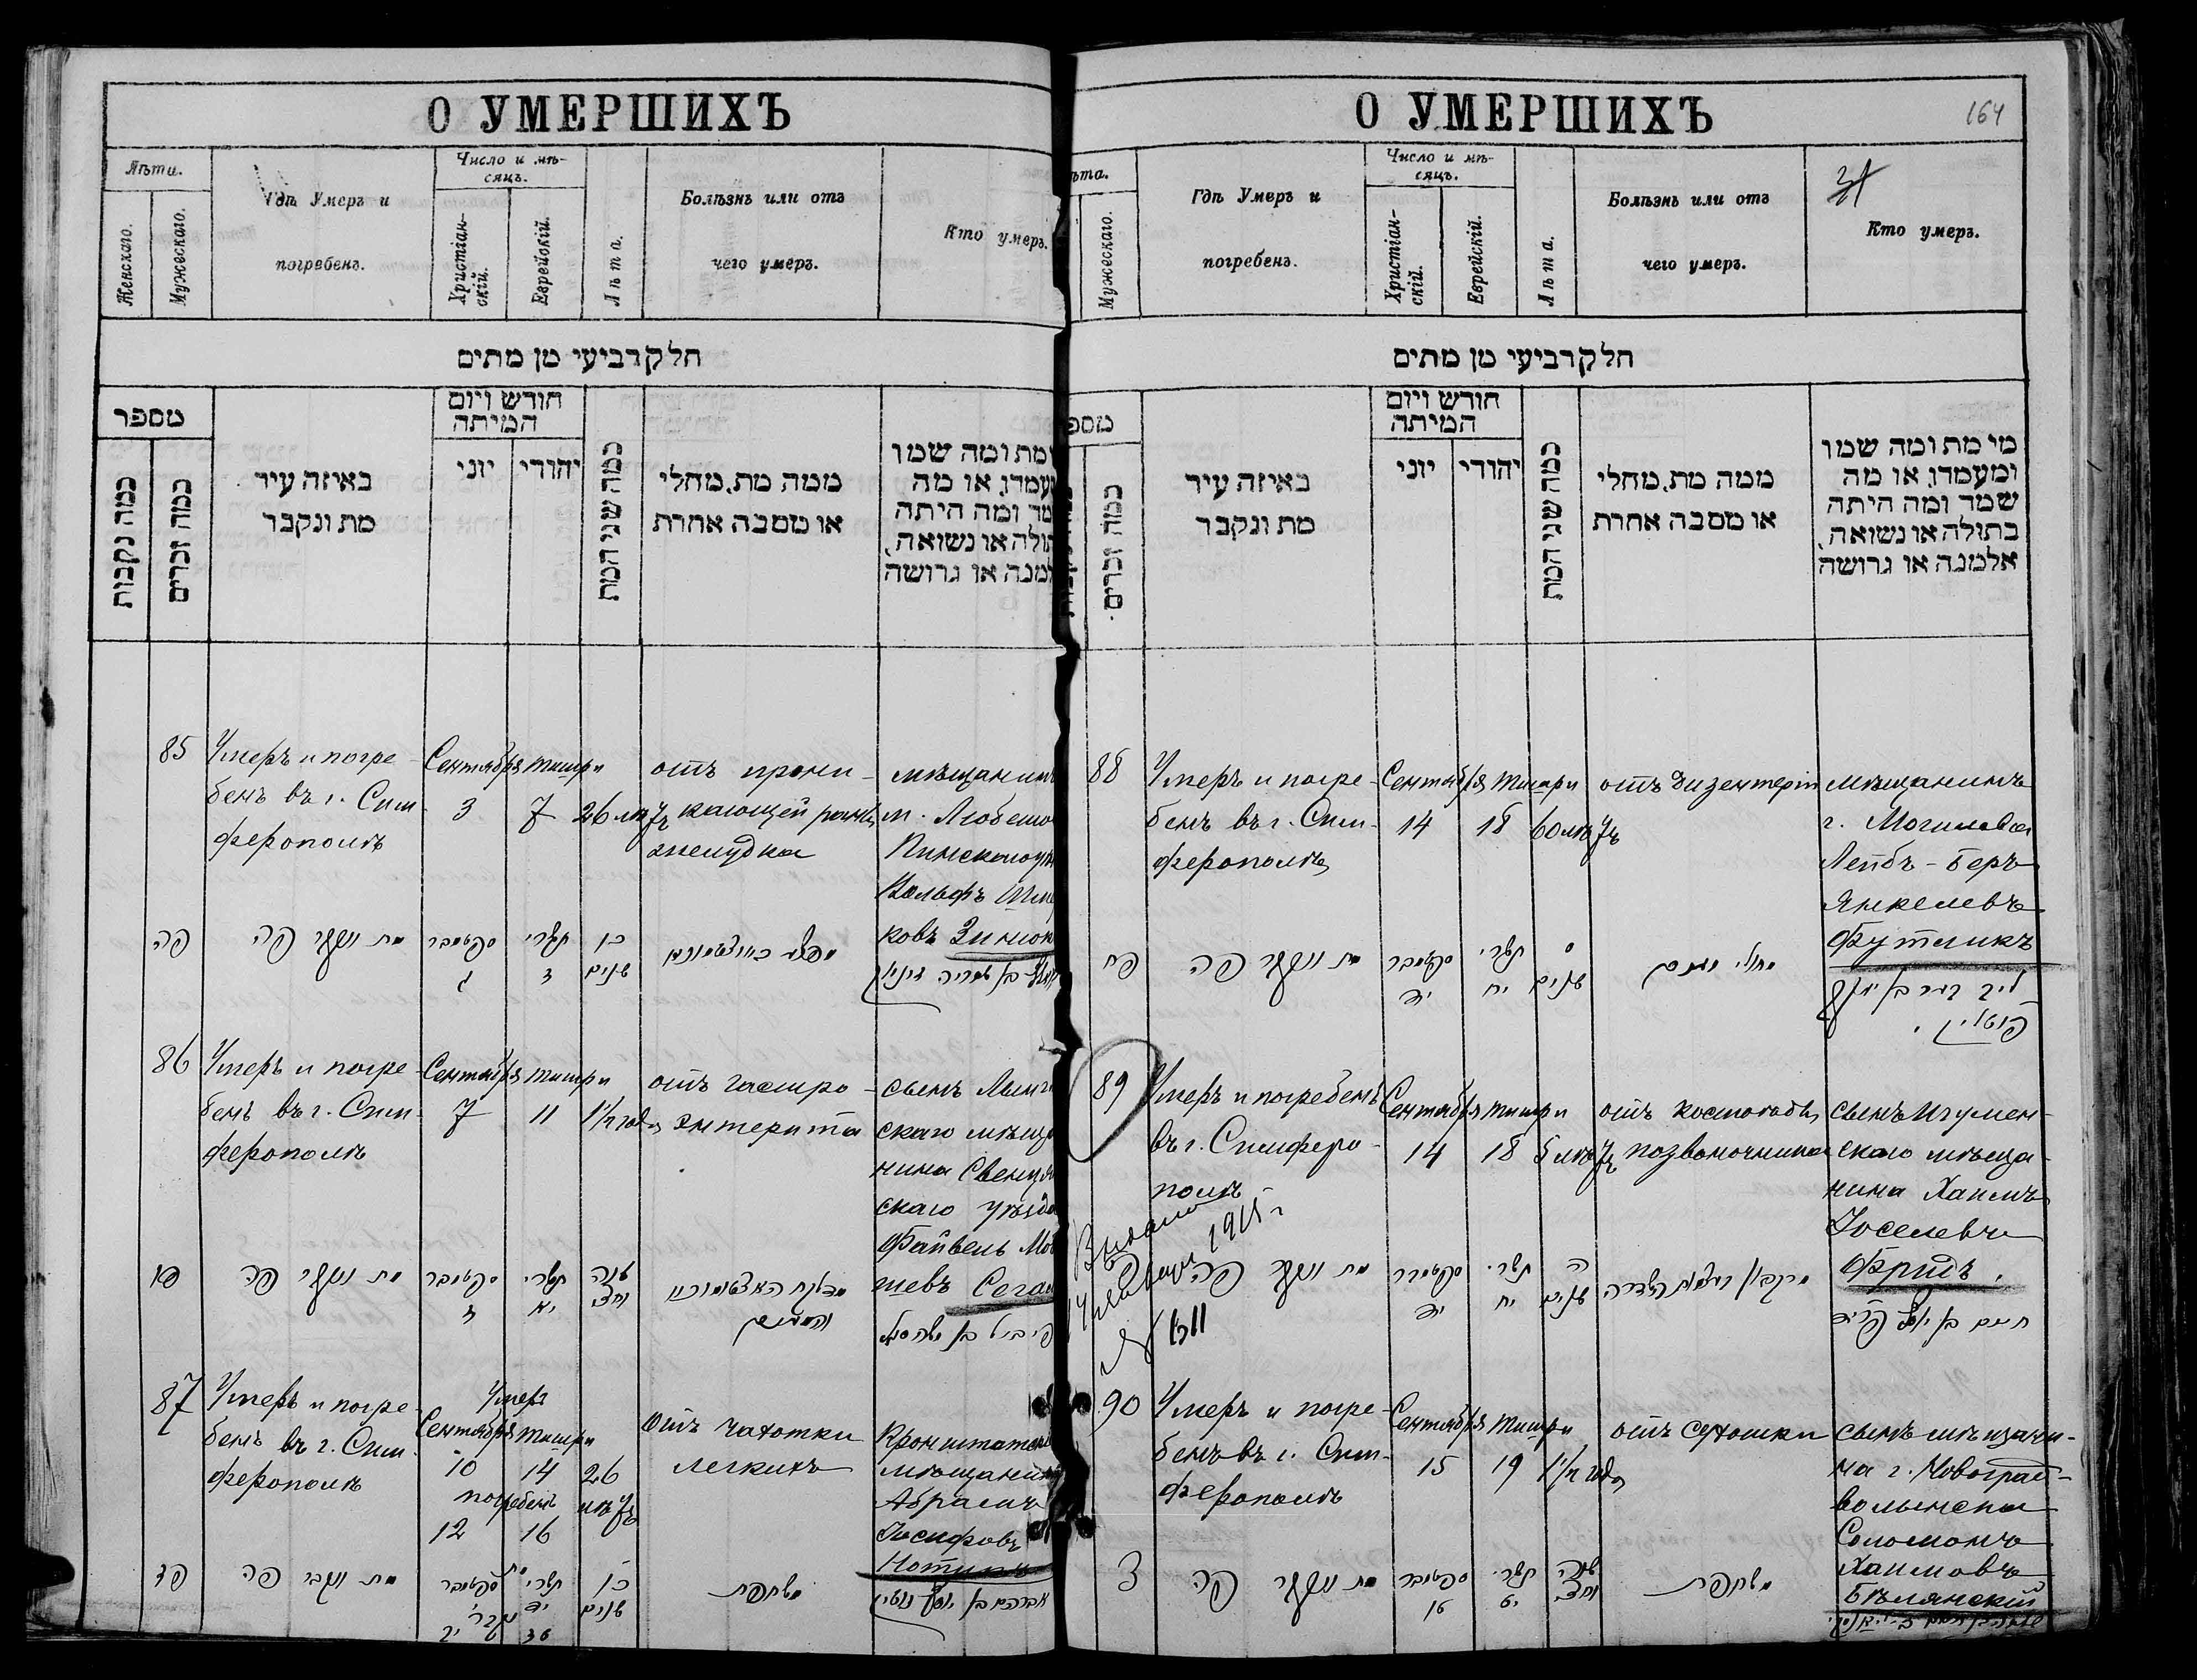 О УМЕРШИХЪ
Лѣта.
Женскаго.
Мужескаго.
Гдѣ Умеръ и
погребенъ.
Число и мѣ-
сяцъ.
Христіан-
скій.
Еврейскій.
Лѣта.
Болѣзнь или отъ
чего умеръ.
Кто умеръ.
חלק רביעי מן מתים
מספר
כמה נקבות
כמה זכרים
באיזה עיר
מת ונקבר
חודש ויום
המיתה
יוני
יהודי
כמה שני המת
ממה מת, מחלי
או מסבה אחרת
מת ומה שמו
או מה
ומה היתה
או נשואה,
או גרושה
85
Умеръ и погре-
бенъ въ г. Сим-
ферополѣ
Сентября Тишри
3 7 26 лѣтъ
отъ прони-
кающей раны
желудка
мѣщанинъ
м. Любешо
Вольфъ
ковъ
פה
מת ונקבר פה
ספטמבר
ג
תשרי
ז
כו
שנים
86
Умеръ и погре-
бенъ въ г. Сим-
ферополѣ
Сентября Тишри
7 11 1½ года
отъ гастро-
энтерита
сынъ
скаго мѣща
нина Свенця
скаго уѣзда
Файвель Мов
шевъ
פו
מת ונקבר פה
ספטמבר
ז
תשרי
יא
שנה
וחצי
87
Умеръ и погре-
бенъ въ г. Сим-
ферополѣ
Умеръ
Сентября Тишри
10 14 26
погребенъ лѣтъ
12 16
отъ чахотки
легкихъ
Кронштатскі
мѣщанинъ
Абрамъ
Іосифовъ
Нотикъ
פז
מת ונקבר פה
ספטמבר
תשרי
יד
כו
שנים
משחפת
אברהם בן יוסף נוטיק
О УМЕРШИХЪ
164
31
ѣта.
Мужескаго.
Гдѣ Умеръ и
погребенъ.
Число и мѣ-
сяцъ.
Христіан-
скій.
Еврейскій.
Лѣта.
Болѣзнь или отъ
чего умеръ.
Кто умеръ.
חלק רביעי מן מתים
מספ
כמה זכרים.
באיזה עיר
מת ונקבר
חודש ויום
המיתה
יוני
יהודי
כמה שני המת
ממה מת, מחלי
או מסבה אחרת
מי מת ומה שמו
ומעמדו, או מה
שמה ומה היתה
בתולה או נשואה,
אלמנה או גרושה
88
Умеръ и погре-
бенъ въ г. Сим-
ферополѣ
Сентября Тишри
14 18 60 лѣтъ
отъ дизентеріи
мѣщанинъ
г. Могилева
Лейбъ-Беръ
Янкелевъ
Футликъ
פח
מת ונקבר פה
ספטמבר
יד
תשרי
יח
ס
שנים
ליב בער בן יעקב
פוטליק.
89
Умеръ и погребенъ
въ г. Симферо-
полѣ
Сентября Тишри
14 18 5 лѣтъ
отъ костоѣды
позвоночника
сынъ Игумен-
скаго мѣща-
нина Хаимъ
Іоселевъ
Фридъ.
Выдано
14 января 1915 г
№
מת ונקבר פה
ספטמבר
יד
תשרי
יח
ה
שנים
חיים בן יוסף פריד
90
Умеръ и погре-
бенъ въ г. Сим-
ферополѣ
Сентября Тишри
15 19 1½ года
отъ сухотки
сынъ мѣщани-
на г. Новоград-
волынска
Соломонъ
Хаимовъ
Бѣлянскій
צ
מת ונקבר פה
ספטמבר
טו
תשרי
יט
שנה
וחצי
משחפת